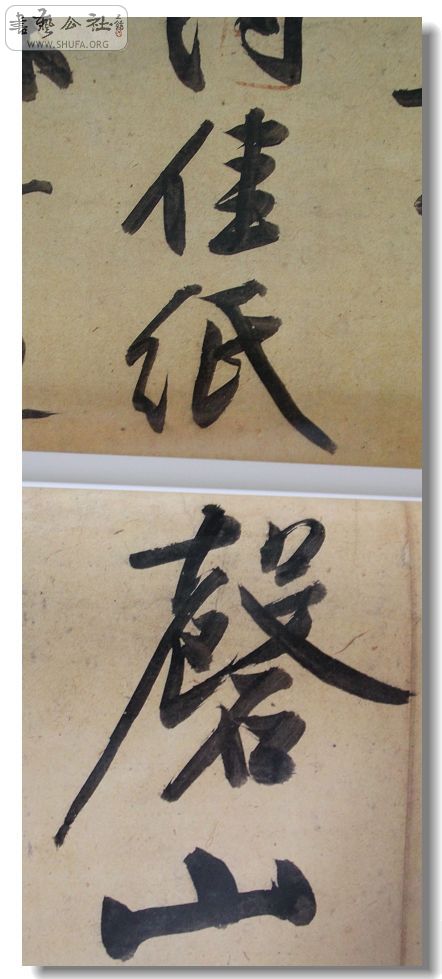 書藝公社
WWW.SHUFA.ORG
佳
紙
磬
山